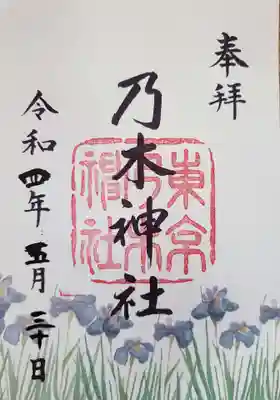 奉拝
乃木神社
東京乃木神社
令和四年五月三十日